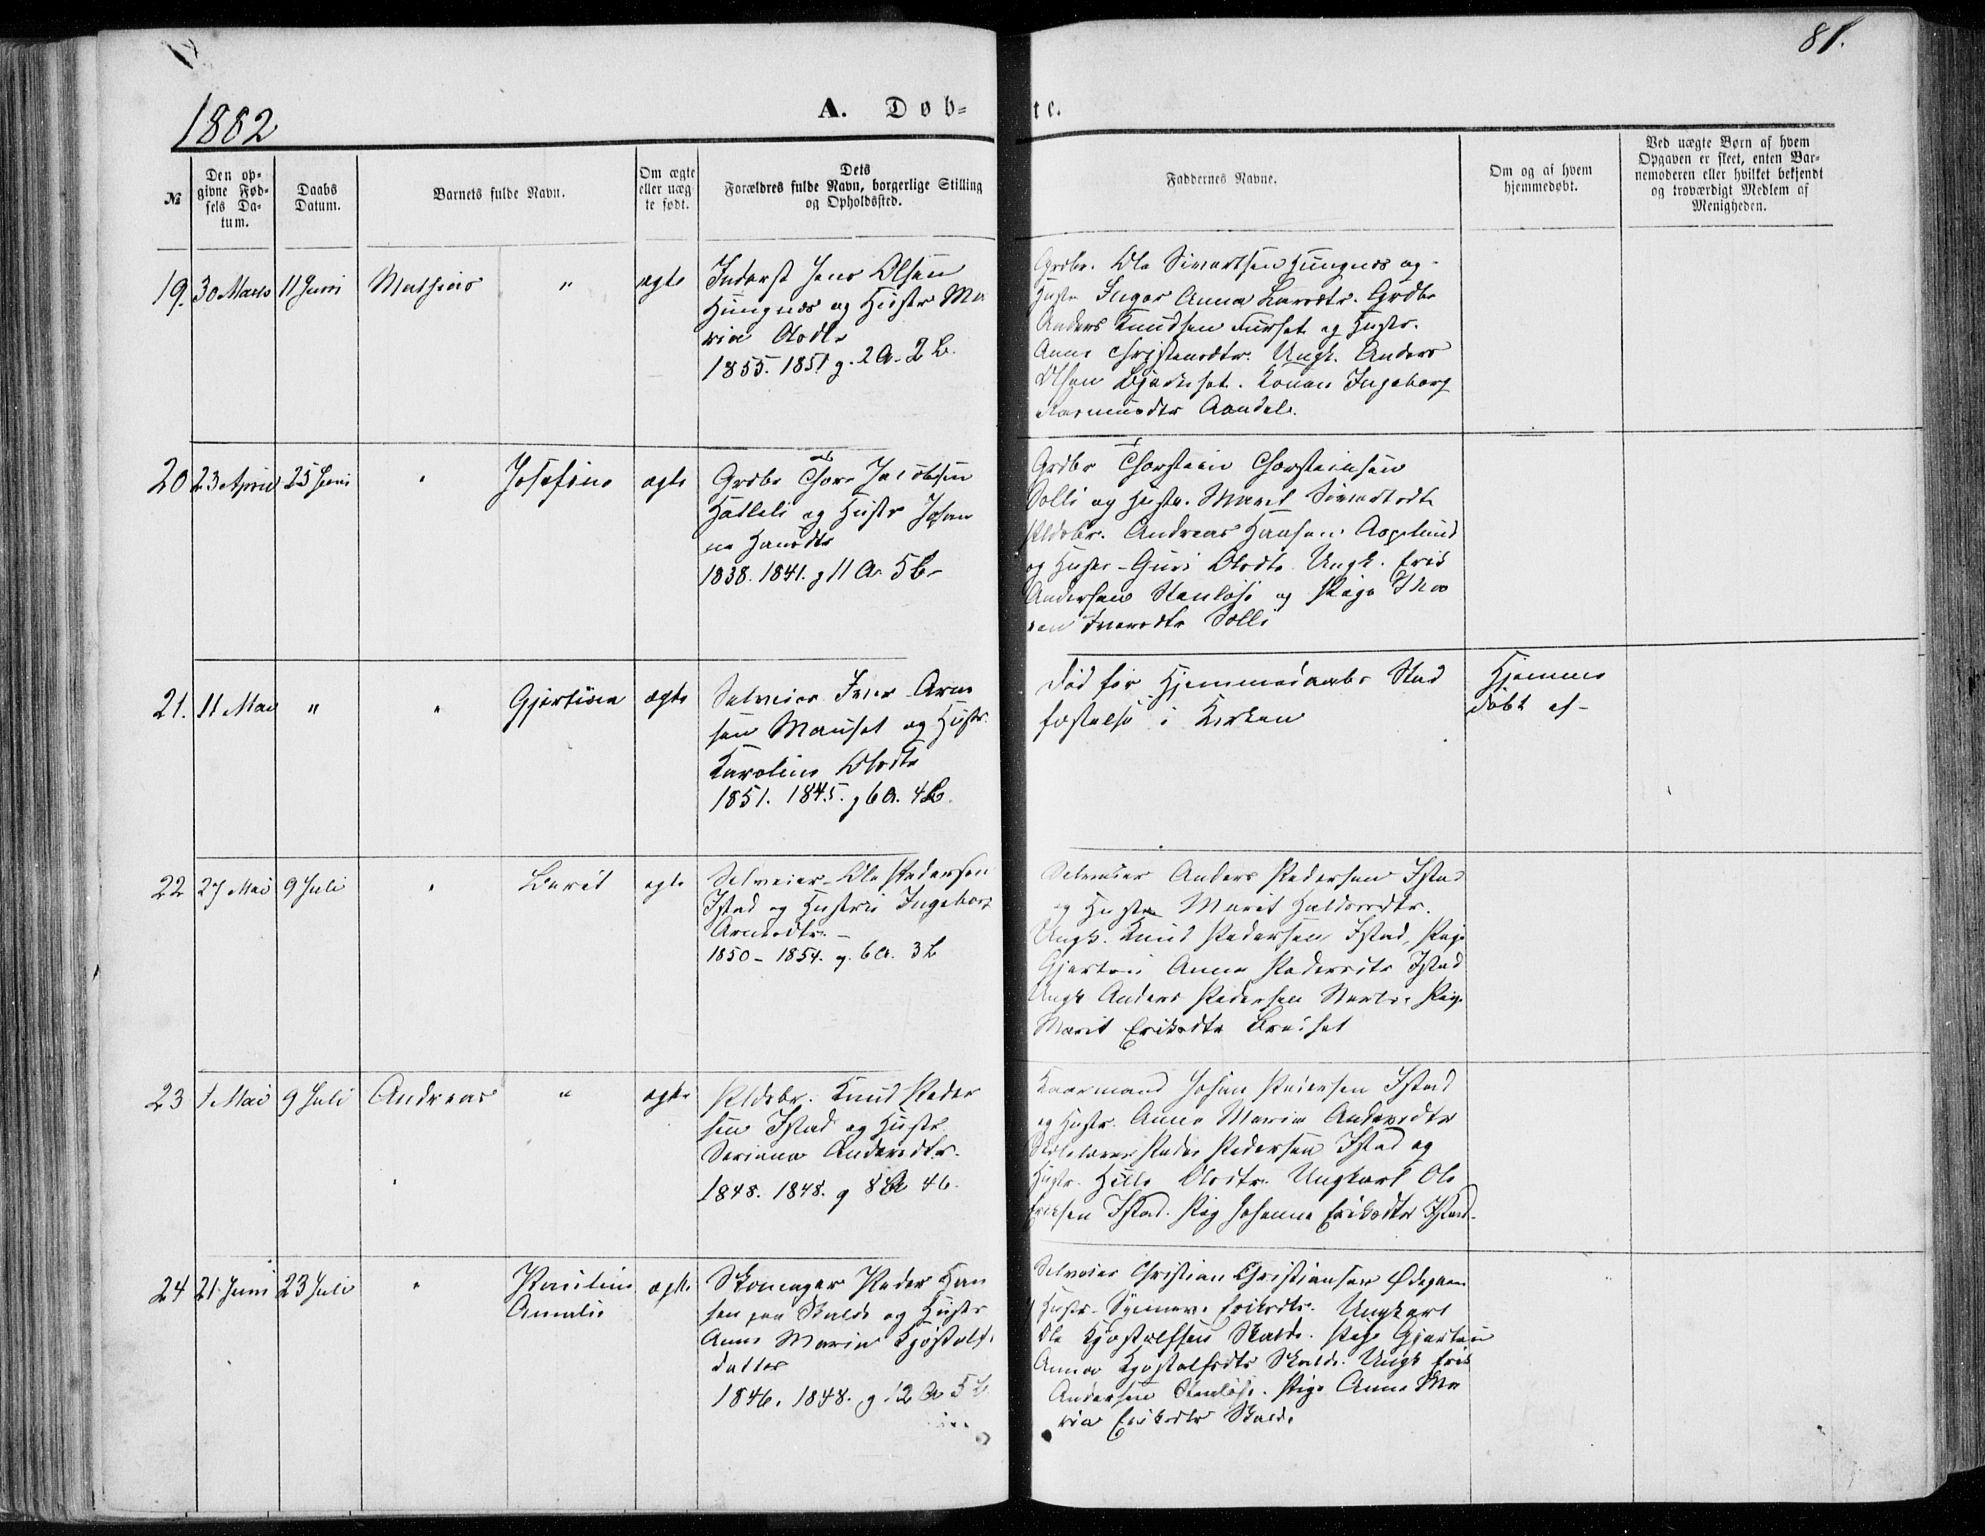 81.
1882
A. Døb-
te.
№
Den op-
givne Fød-
sels Da-
tum.
Daabs
Datum.
Barnets fulde Navn.
Om ægte
eller uæg-
te født.
Dets
Forældres fulde Navn, borgerlige Stilling
og Opholdssted.
Faddernes Navne.
Om og af hvem
hjemmedøbt.
Ved uægte Børn af hvem
Opgaven er skeet, enten Bar-
nemoderen eller hvilket bekjendt
og troværdigt Medlem af
Menigheden.
19. 30 Marts 11 Juni Mathias " ægte
Inderst Jens Olsen
Hungnes og Hustr Ma
ria Olsdtr
1855. 1851 g. 2 A. 2 B.
Grdbr. Ole Sivertsen Hungnes og
Hustr Inger Anna Larsdtr. Grdbr
Anders Knudsen Furset og Hustr.
Anne Christensdtr. Ungk. Anders
Olsen. Konen Ingeborg
Rasmusdtr Aandal.
20 23 April 25 Juni " Josefine ægte
Grdbr Thore Jacobsen
Hatleli og Hustr Johan
ne Hansdtr
1838. 1841. g 11 A. 5 B.
Grdbr Thorstein Thorsteinsen
Solli og Hustr. Marit Sivertsdtr
Pldsbr. Andreas Hansen
og Hustr. Guri Olsdtr. Ungk. Erik
Andersen Stenløse og Pige
Iversdtr Solli
21. 11 Mai " " Gjertine ægte
Selveier Iver Arne
sen Mauset og Hustr.
Karoline Olsdtr
1851. 1845. g 6 A. 4 B.
Død før Hjemmedaabs Stad
fæstelse i Kirken
Hjemme
døbt af -
22 27 Mai 9 Juli " Berit ægte
Selveier Ole Pedersen
Istad og Hustru Ingeborg
Arnesdtr. -
1850 - 1854. g. 6 A. 3 B
Selveier Anders Pedersen Istad
og Hustr Marit Haldorsdtr.
Ungk. Knud Pedersen Istad, Pige
Anna Pedersdtr Istad
Ungk Anders Pedersen Pige
Marit Eriksdtr Breiset
23 1 Mai 9 Juli Andreas " ægte
Pldsbr. Knud Peder
sen Istad og Hustr.
Seriana Andersdtr.
1848. 1848. g 8 A 4 B.
Kaarmand Johan Pedersen Istad
og Hustr. Anne Marie Andersdtr
Skolelærer Peder Pedersen Istad og
Hustr. Olsdtr. Ungkarl Ole
Eriksen Istad. Pig Johanna Eriksdtr Istad.
24 21 Juni 23 Juli " Pauline
Amalie ægte
Skomager Peder Han
sen paa Skalde og Hustr
Anne Maria Kjøstolfs
datter
1846. 1848. g. 12 A 5 B
Selveier Christian Christiansen Ødegaard
Hustr. Synnøve Eriksdtr. Ungkarl
Ole Kjøstolfsen Skalde. Pige
Anna Kjøstolfsdtr Skalde. Ungk Erik
Andersen Stenløse. Pige Anne Ma
ria Eriksdtr Skalde